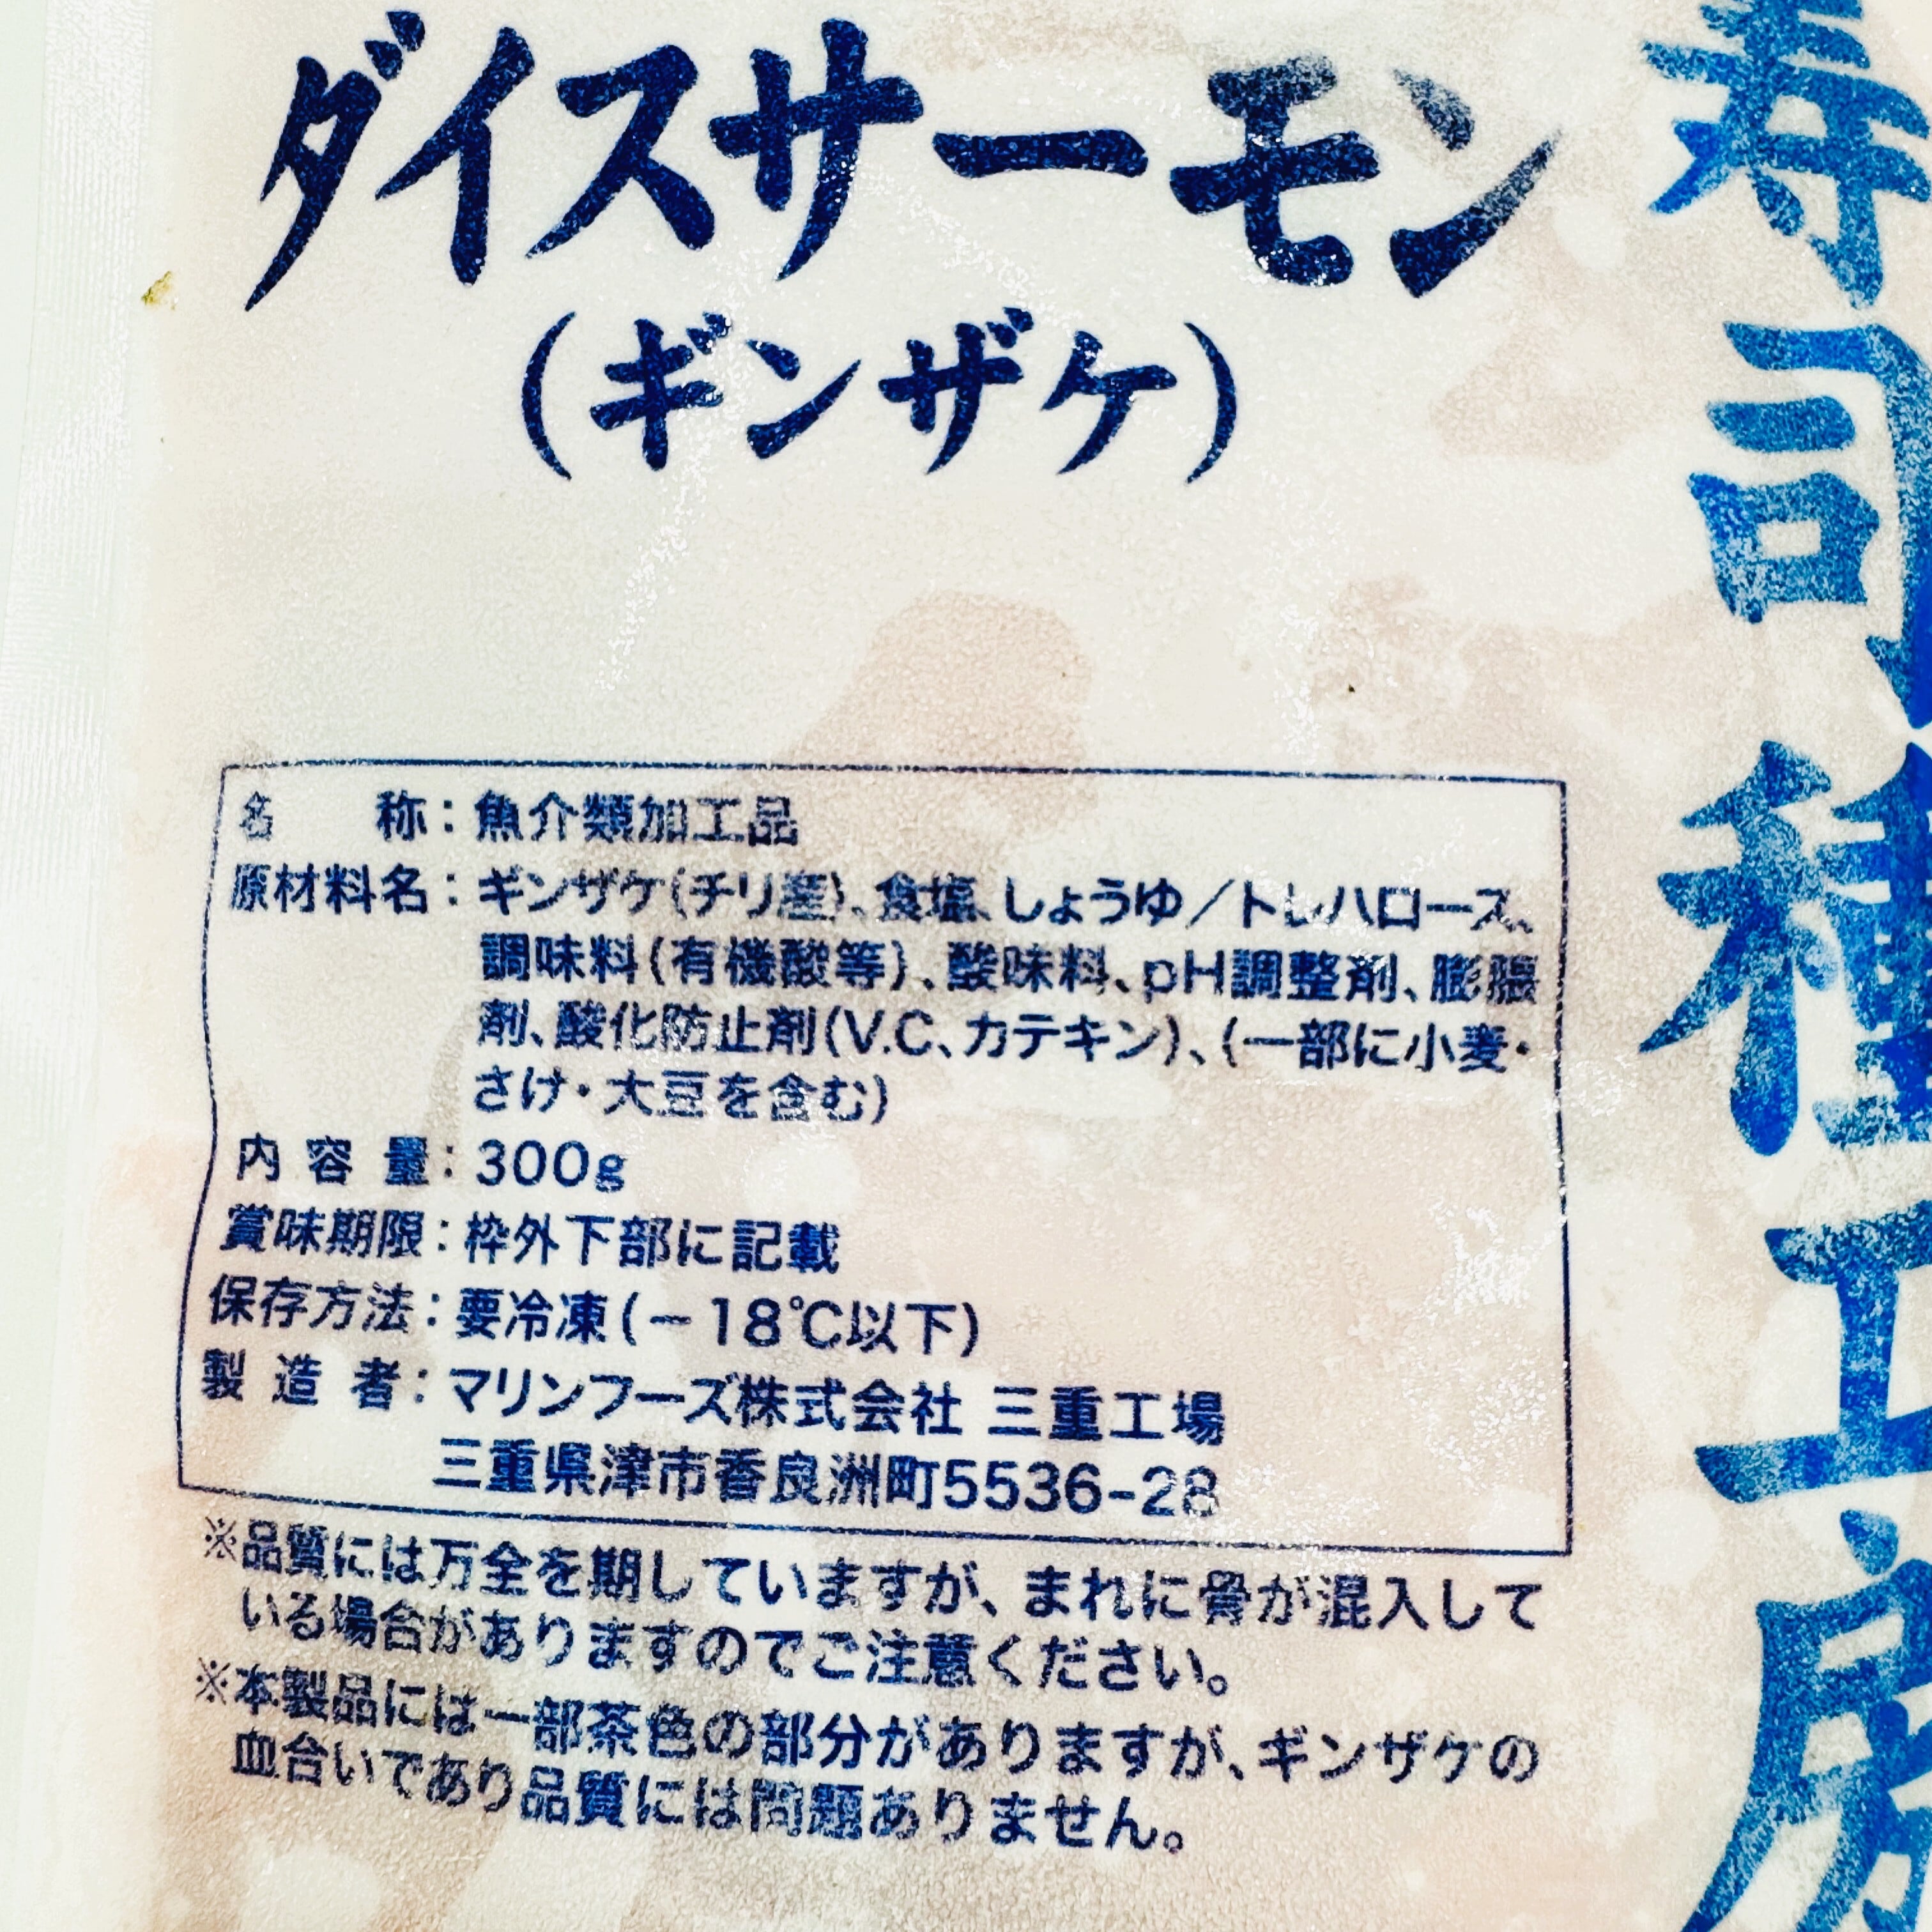 ダイスサーモン
(ギンザケ)
寿司種工房
名　　称：魚介類加工品
原材料名：ギンザケ(チリ産)、食塩、しょうゆ／トレハロース、
調味料(有機酸等)、酸味料、pH調整剤、膨脹
剤、酸化防止剤(V.C、カテキン)、(一部に小麦・
さけ・大豆を含む)
内 容 量：300g
賞味期限：枠外下部に記載
保存方法：要冷凍(－18℃以下)
製 造 者：マリンフーズ株式会社 三重工場
三重県津市香良洲町5536-28
※品質には万全を期していますが、まれに骨が混入して
いる場合がありますのでご注意ください。
※本製品には一部茶色の部分がありますが、ギンザケの
血合いであり品質には問題ありません。